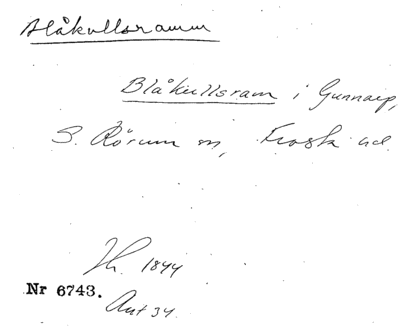 Blåkullsramm
Blåkullsram i Gunnarp,
S. Rörum sn, Frosta hd.
Th. 1844
Nr 6743.
Ant 34.